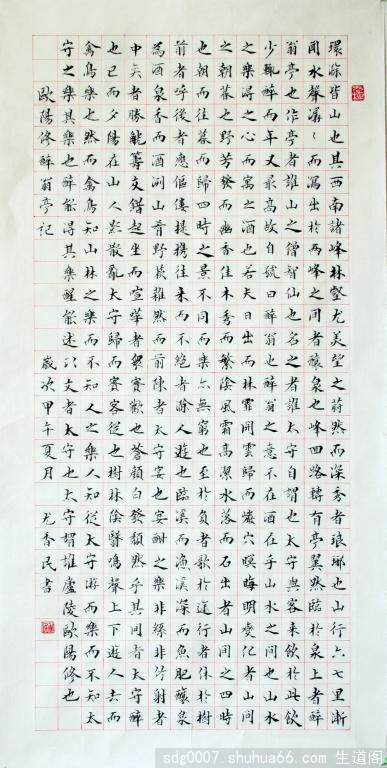 環滁皆山也其西南諸峰林壑尤美望之蔚然而深秀者琅琊也山行六七里漸
聞水聲潺潺而瀉出於兩峰之間者釀泉也峰回路轉有亭翼然臨於泉上者醉
翁亭也作亭者誰山之僧智仙也名之者誰太守自謂也太守與客來飲於此飲
少輒醉而年又最高故自號曰醉翁也醉翁之意不在酒在乎山水之間也山水
之樂得之心而寓之酒也若夫日出而林霏開雲歸而巖穴暝晦明變化者山間
之朝暮也野芳發而幽香佳木秀而繁陰風霜高潔水落而石出者山間之四時
也朝而往暮而歸四時之景不同而樂亦無窮也至於負者歌於途行者休於樹
前者呼後者應傴僂提攜往來而不絕者滁人遊也臨溪而漁溪深而魚肥釀泉
為酒泉香而酒洌山肴野蔌雜然而前陳者太守宴也宴酣之樂非絲非竹射者
中奕者勝觥籌交錯起坐而諠譁者眾賓歡也蒼顏白髮頹然乎其間者太守醉
也已而夕陽在山人影散亂太守歸而賓客從也樹林陰翳鳴聲上下遊人去而
禽鳥樂也然而禽鳥知山林之樂而不知人之樂人知從太守游而樂而不知太
守之樂其樂也醉能同其樂醒能述以文者太守也太守謂誰廬陵歐陽修也
歐陽修醉翁亭記 歲次甲午夏月 尤香民書
sdg0007.shuhua66.com 生道阁